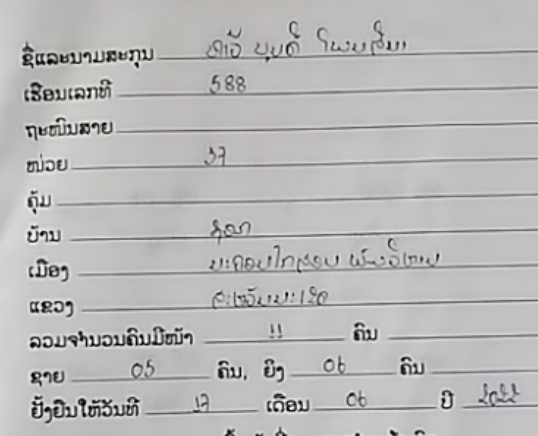 ຊື່ແລະນາມສະກຸນ ທ້າວ ບຸນຕີ
ເຮືອນເລກທີ 588
ຖະໜົນສາຍ
ໜ່ວຍ 37
ຄຸ້ມ
ບ້ານ
ເມືອງ ນະຄອນໄກສອນ ພົມວິຫານ
ແຂວງ ສະຫວັນນະເຂດ
ລວມຈຳນວນຄົນມີໜ້າ 11 ຄົນ
ຊາຍ 05 ຄົນ, ຍິງ 06 ຄົນ
ຢັ້ງຢືນໃຫ້ວັນທີ 17 ເດືອນ 06 ປີ 2022